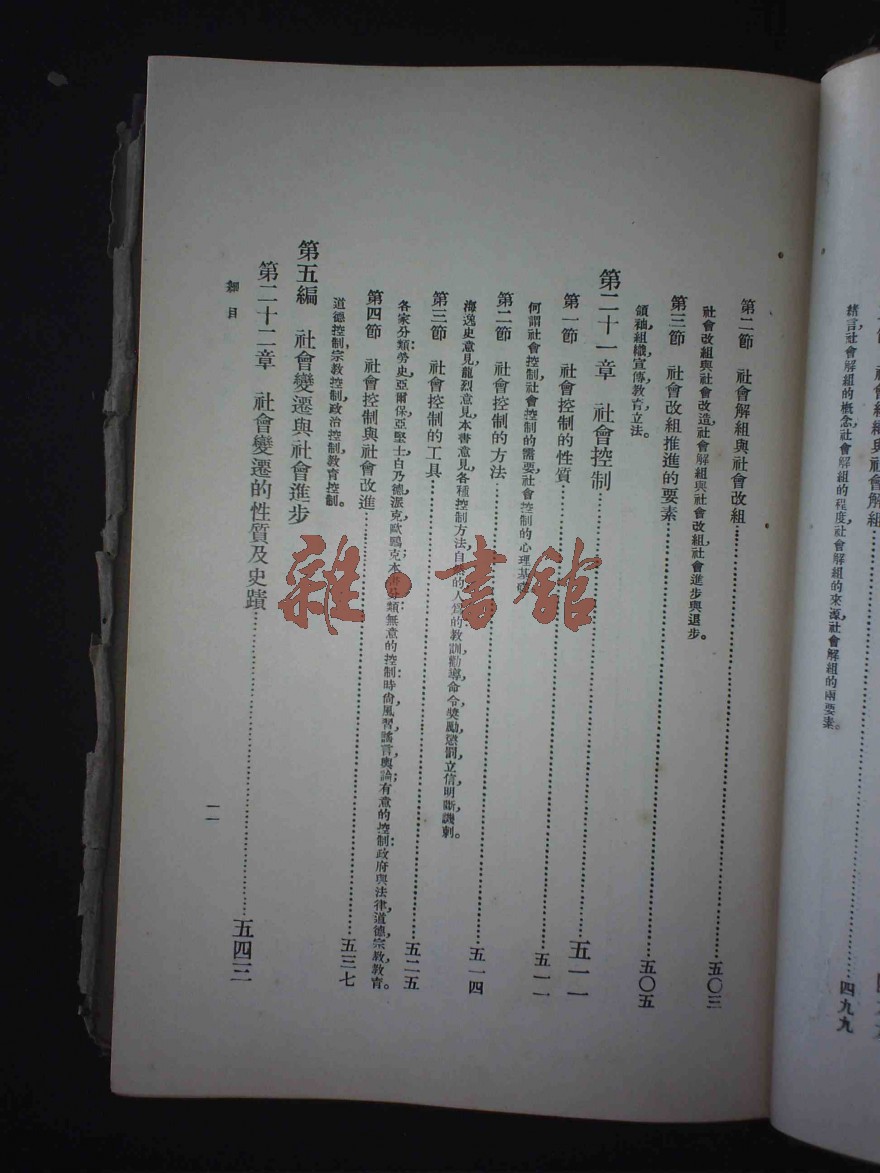 緒言,社會解組的概念,社會解組的程度,社會解組的來源,社會解組的兩要素。
四九九
第二節 社會解組與社會改組……五〇三
社會改組與社會改造,社會解組與社會改組,社會進步與退步。
第三節 社會改組推進的要素……五〇五
領袖,組織,宣傳,教育,立法。
第二十一章 社會控制……五一一
第一節 社會控制的性質……五一一
何謂社會控制,社會控制的需要,社會控制的心理基礎
第二節 社會控制的方法……五一四
海逸史意見,龍烈意見,本書意見,各種控制方法,自 的人爲的教訓,勸導,命令,獎勵,懲罰,立信,明斷,譏刺。
第三節 社會控制的工具……五二五
各家分類:勞史,亞爾保,亞堅士,白乃德,派克,歐鷗克;本書分類無意的控制:時尙,風習,謠言,輿論;有意的控制:政府與法律,道德,宗教,教育。
第四節 社會控制與社會改進……五三七
道德控制,宗教控制,政治控制,教育控制。
第五編 社會變遷與社會進步
第二十二章 社會變遷的性質及史蹟……五四三
細目
一一
雜·書館